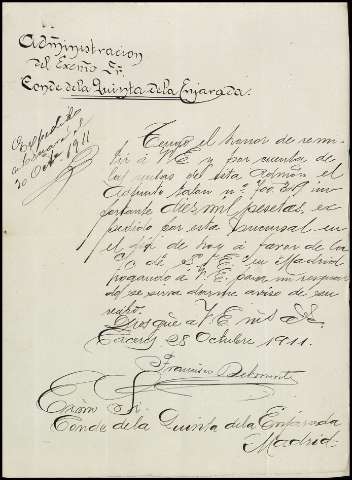 Administracion
del Excmo Sr.
Conde de la Quinta de la Enjarada.
30 Octe 1911
Tengo el honor de remi-
tir á V.E. y por cuenta de
las rentas de esta Admón el
adjunto talón nº im-
portante diez mil pesetas, ex-
pedido por esta sucursal en
el dia de hoy á favor de la
de S. E. en Madrid
á V.E. para mi resguar-
do se sirva darme aviso de su
recibo.
Dios gue á V.E. ms as
Caceres 28 Octubre 1911.
Francisco Belmonte
Excmo Sr.
Conde de la Quinta de la Enjarada
Madrid.